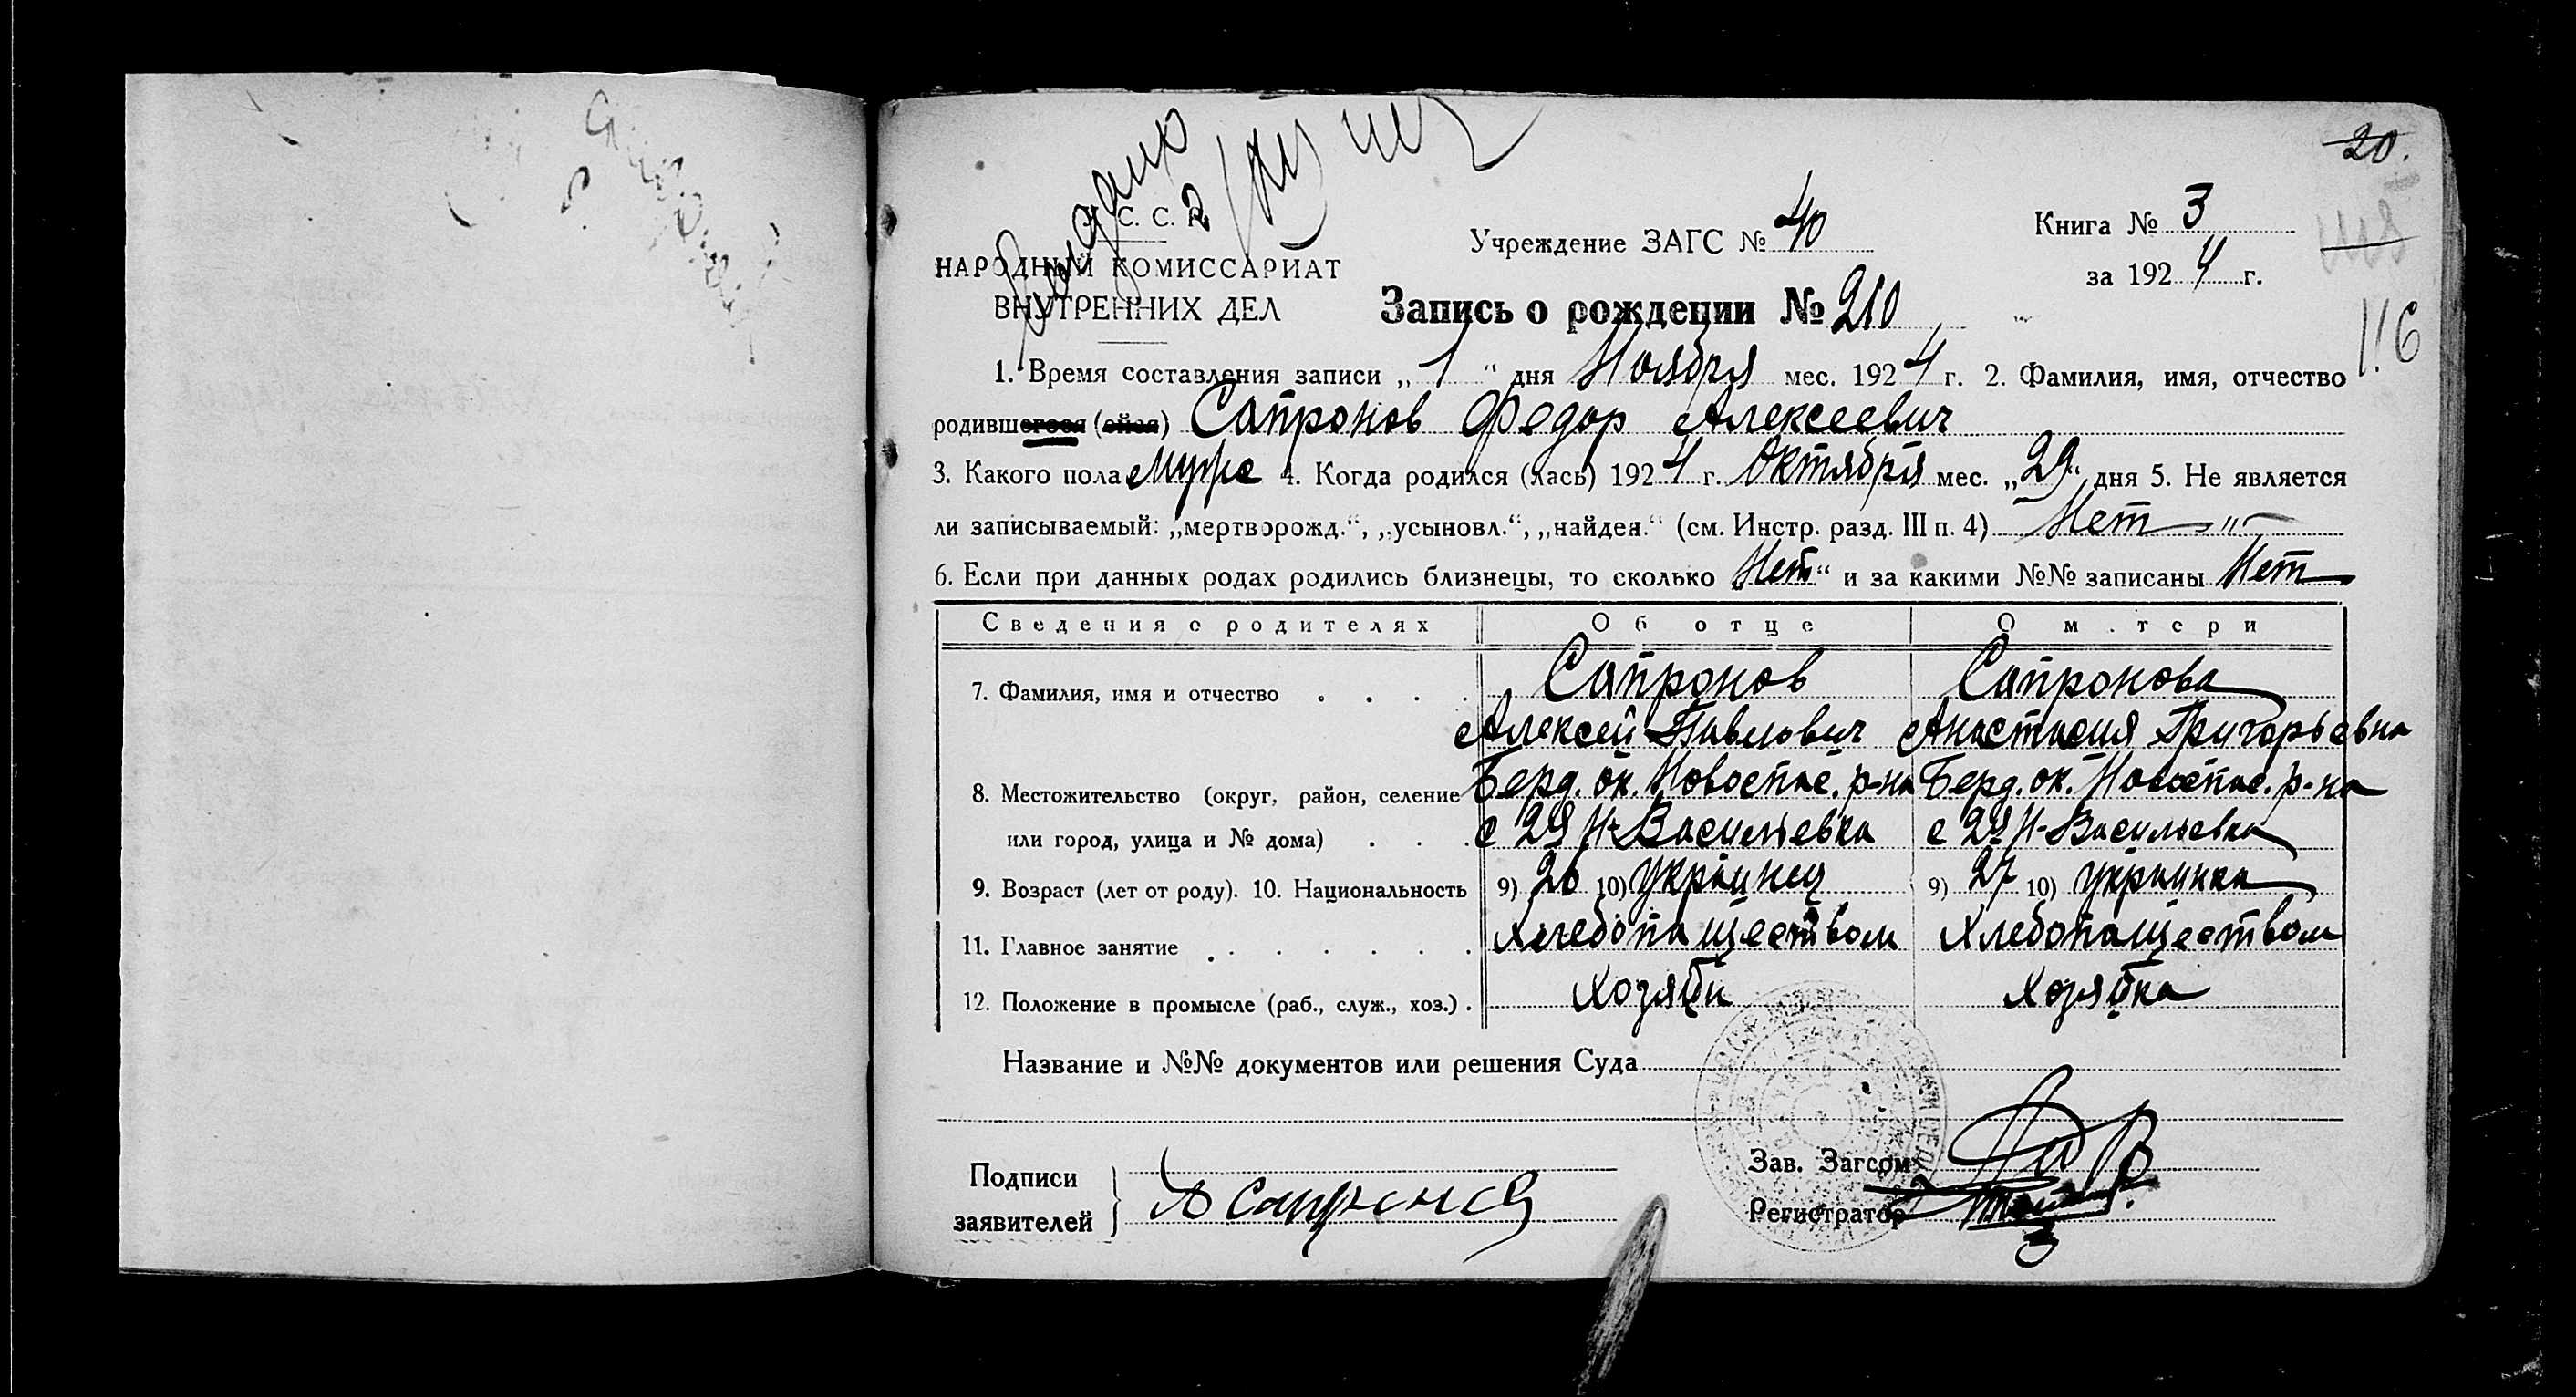 20.
С. С. Р.
Учреждение ЗАГС № 40
Книга № 3
за 1924 г.
116
НАРОДНЫЙ КОМИССАРИАТ
ВНУТРЕННИХ ДЕЛ
Запись о рождении № 210
1. Время составления записи „1“ дня Ноября мес. 1924 г. 2. Фамилия, имя, отчество
родившегося (ейся) Сапронов Федор Алексеевич
3. Какого пола Мужс 4. Когда родился (лась) 1924 г. Октября мес. „29“ дня 5. Не является
ли записываемый: „мертворожд.“, „усыновл.“, „найден.“ (см. Инстр. разд. III п. 4) Нет —„—
6. Если при данных родах родились близнецы, то сколько „Нет“ и за какими №№ записаны Нет
Сведения о родителях Об отце О м.тери
7. Фамилия, имя и отчество Сапронов Сапронова
Алексей Павлович Анастасия Григорьевна
8. Местожительство (округ, район, селение Берд. ок. Новоспас. р-на Берд. ок. Новоспас. р-на
или город, улица и № дома) с 2я Н-Васильевка с 2я Н-Васильевка
9. Возраст (лет от роду). 10. Национальность 9) 26 10) Украинец 9) 27 10) Украинка
11. Главное занятие Хлебопашеством Хлебопашеством
12. Положение в промысле (раб., служ., хоз.) Хозяин Хозяйка
Название и №№ документов или решения Суда
Подписи
заявителей
А Сапронов
Зав. Загсом
Регистратор